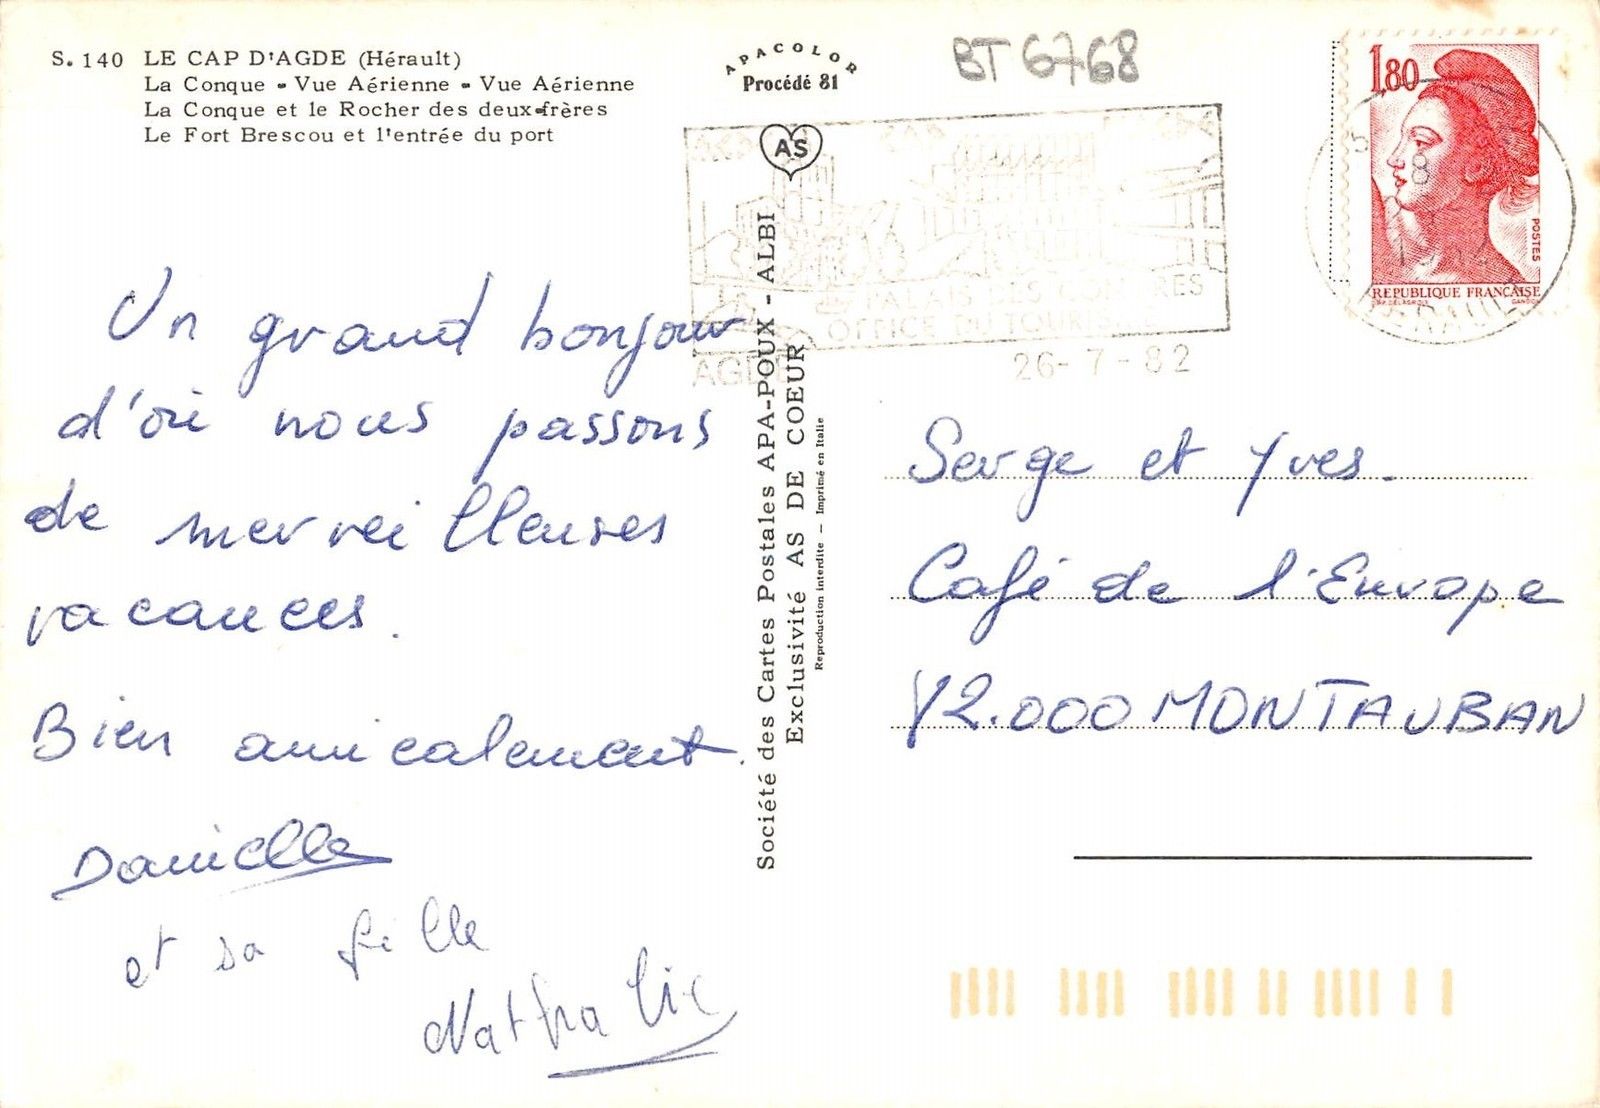 S. 140 LE CAP D'AGDE (Hérault)
La Conque - Vue Aérienne - Vue Aérienne
La Conque et le Rocher des deux-frères
Le Fort Brescou et l'entrée du port
APACOLOR
Procédé 81
AS
BT 6768
1,80
POSTES
REPUBLIQUE FRANÇAISE
GANDON
CAP
PALAIS DES CONGRES
OFFICE DU TOURIS
AGDE
26-7-82
Un grand bonjour
d'où nous passons
de merveilleuses
vacances.
Bien amicalement.
Danielle
et sa fille
Nathalie
Société des Cartes Postales APA-POUX - ALBI
Exclusivité AS DE COEUR
Reproduction interdite - Imprimé en Italie
Serge et Yves.
Café de l'Europe
82.000 MONTAUBAN